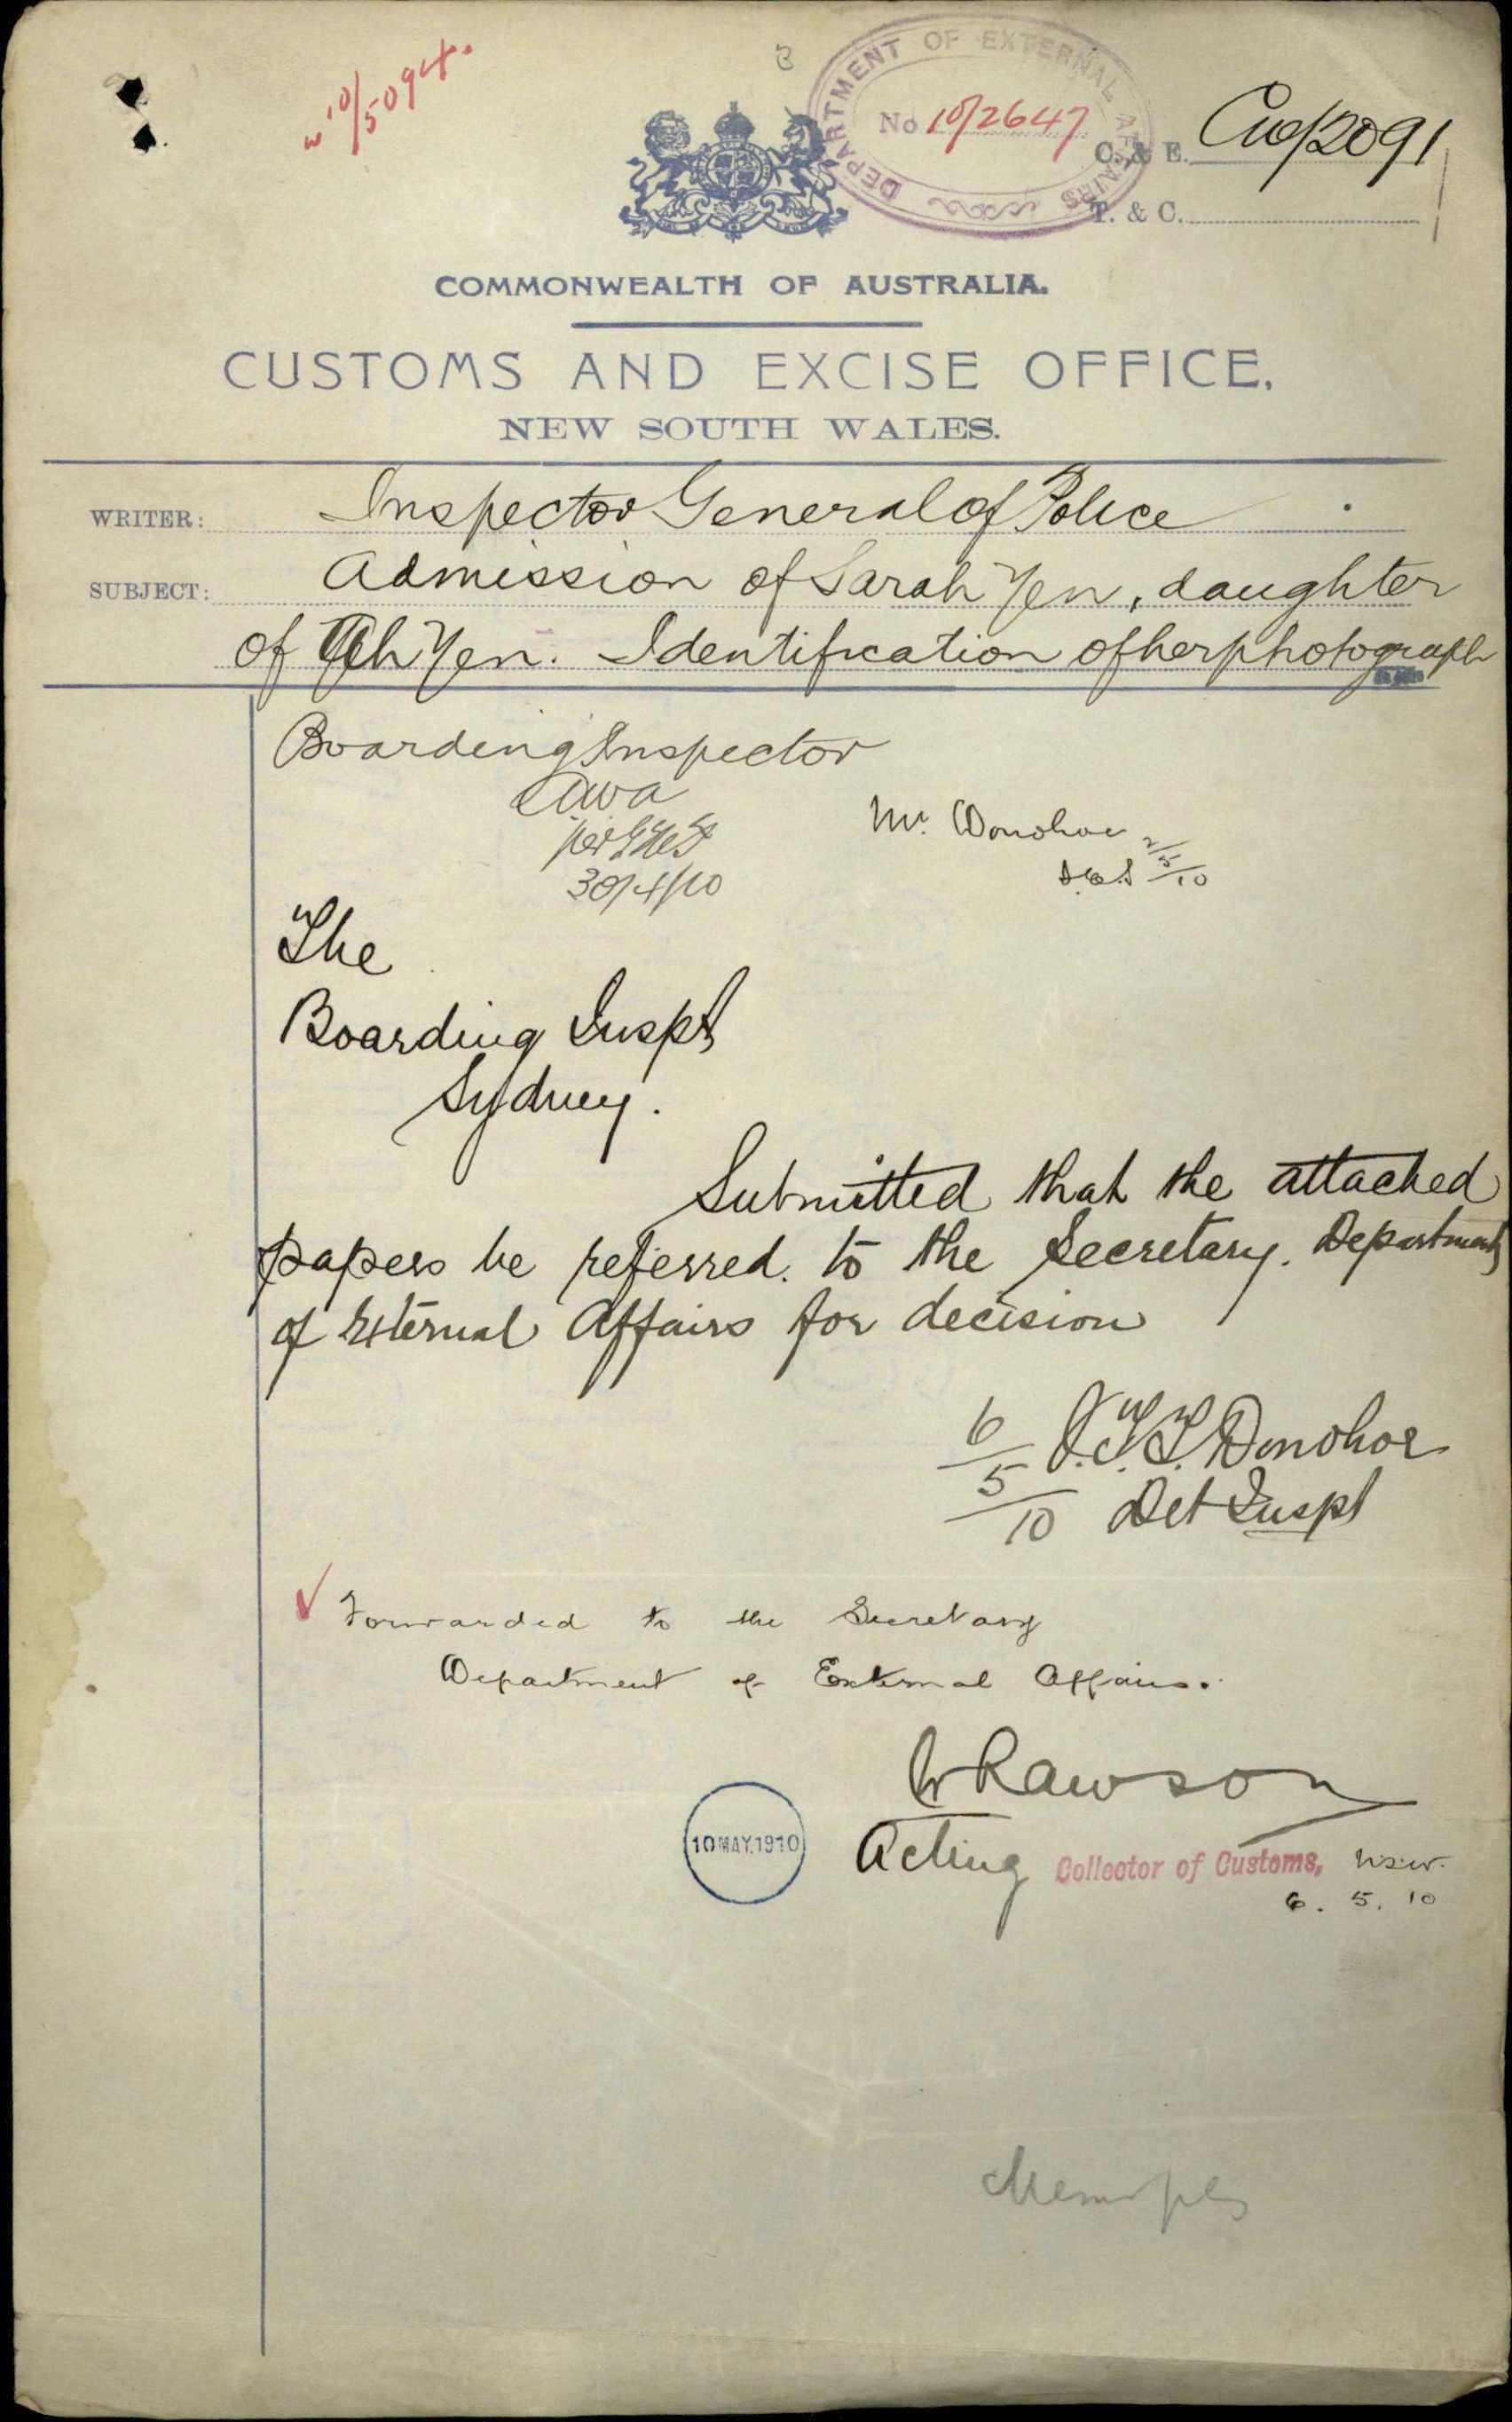 w 10/5094.
DEPARTMENT OF EXTERNAL AFFAIRS
No 10/2647
C. & E. C10/2091
T. & C.
COMMONWEALTH OF AUSTRALIA.
CUSTOMS AND EXCISE OFFICE,
NEW SOUTH WALES.
WRITER: Inspector General of Police
SUBJECT: Admission of Sarah Yen, daughter
of Ah Yen. Identification of her photograph
Boarding Inspector
per
30/4/10
Mr. Donohoe
2/5/10
The
Boarding Inspr
Sydney.
Submitted that the attached
papers be referred. to the Secretary. Department
of External Affairs for decision
6/5/10 J.T.T. Donohoe
Det Inspr
Forwarded to the Secretary
Department of External Affairs.
W Rawson
10 MAY.1910
Acting Collector of Customs, NSW.
6. 5. 10
Memo pls